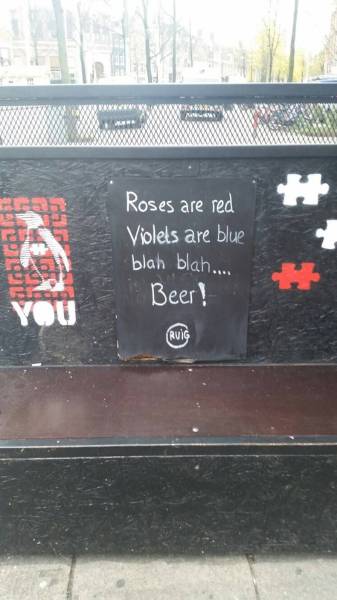 Roses are red
Violets are blue
blah blah....
Beer!
RUIG
YOU